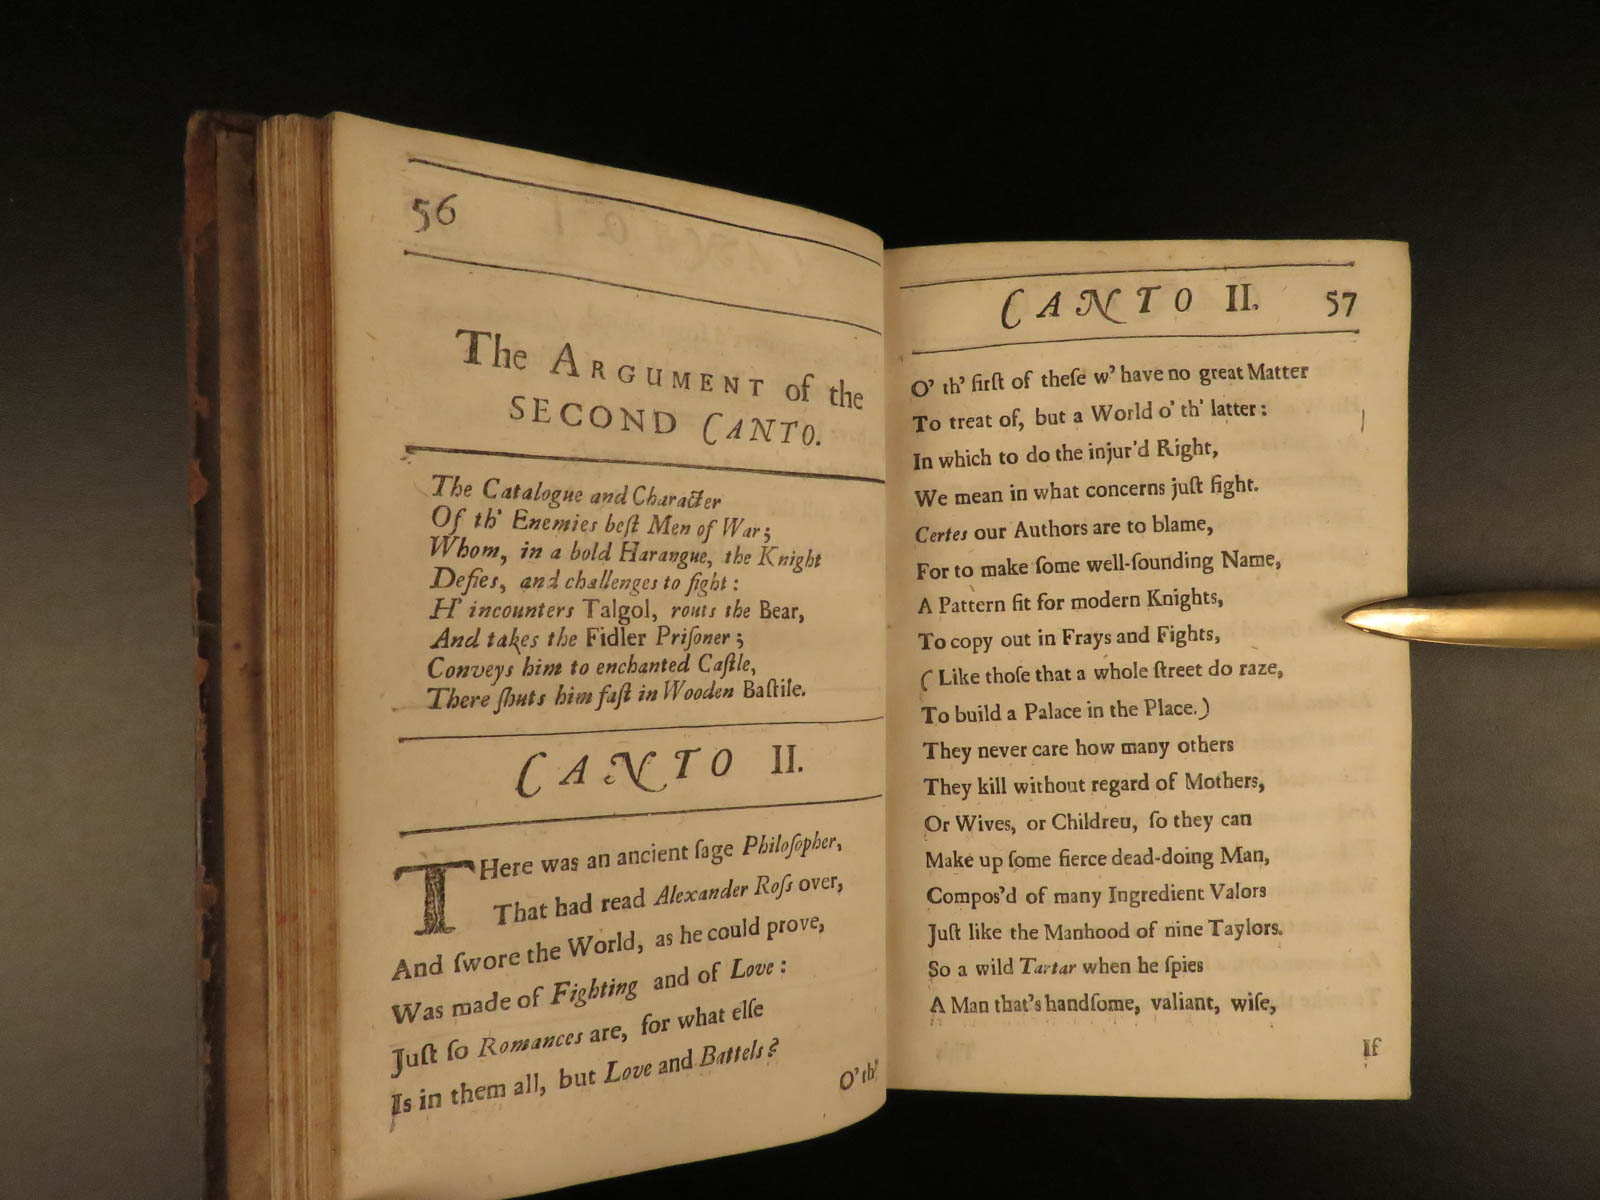 56
The ARGUMENT of the
SECOND CANTO.
The Catalogue and Character
Of th' Enemies beſt Men of War;
Whom, in a bold Harangue, the Knight
Defies, and challenges to fight:
H' incounters Talgol, routs the Bear,
And takes the Fidler Priſoner;
Conveys him to enchanted Caſtle,
There ſhuts him faſt in Wooden Baſtile.
CANTO II.
THere was an ancient ſage Philoſopher,
That had read Alexander Roſs over,
And ſwore the World, as he could prove,
Was made of Fighting and of Love:
Juſt ſo Romances are, for what elſe
Is in them all, but Love and Battels?
O' th'
CANTO II. 57
O' th' firſt of theſe w' have no great Matter
To treat of, but a World o' th' latter:
In which to do the injur'd Right,
We mean in what concerns juſt fight.
Certes our Authors are to blame,
For to make ſome well-ſounding Name,
A Pattern fit for modern Knights,
To copy out in Frays and Fights,
(Like thoſe that a whole ſtreet do raze,
To build a Palace in the Place.)
They never care how many others
They kill without regard of Mothers,
Or Wives, or Children, ſo they can
Make up ſome fierce dead-doing Man,
Compos'd of many Ingredient Valors
Juſt like the Manhood of nine Taylors.
So a wild Tartar when he ſpies
A Man that's handſome, valiant, wiſe,
If